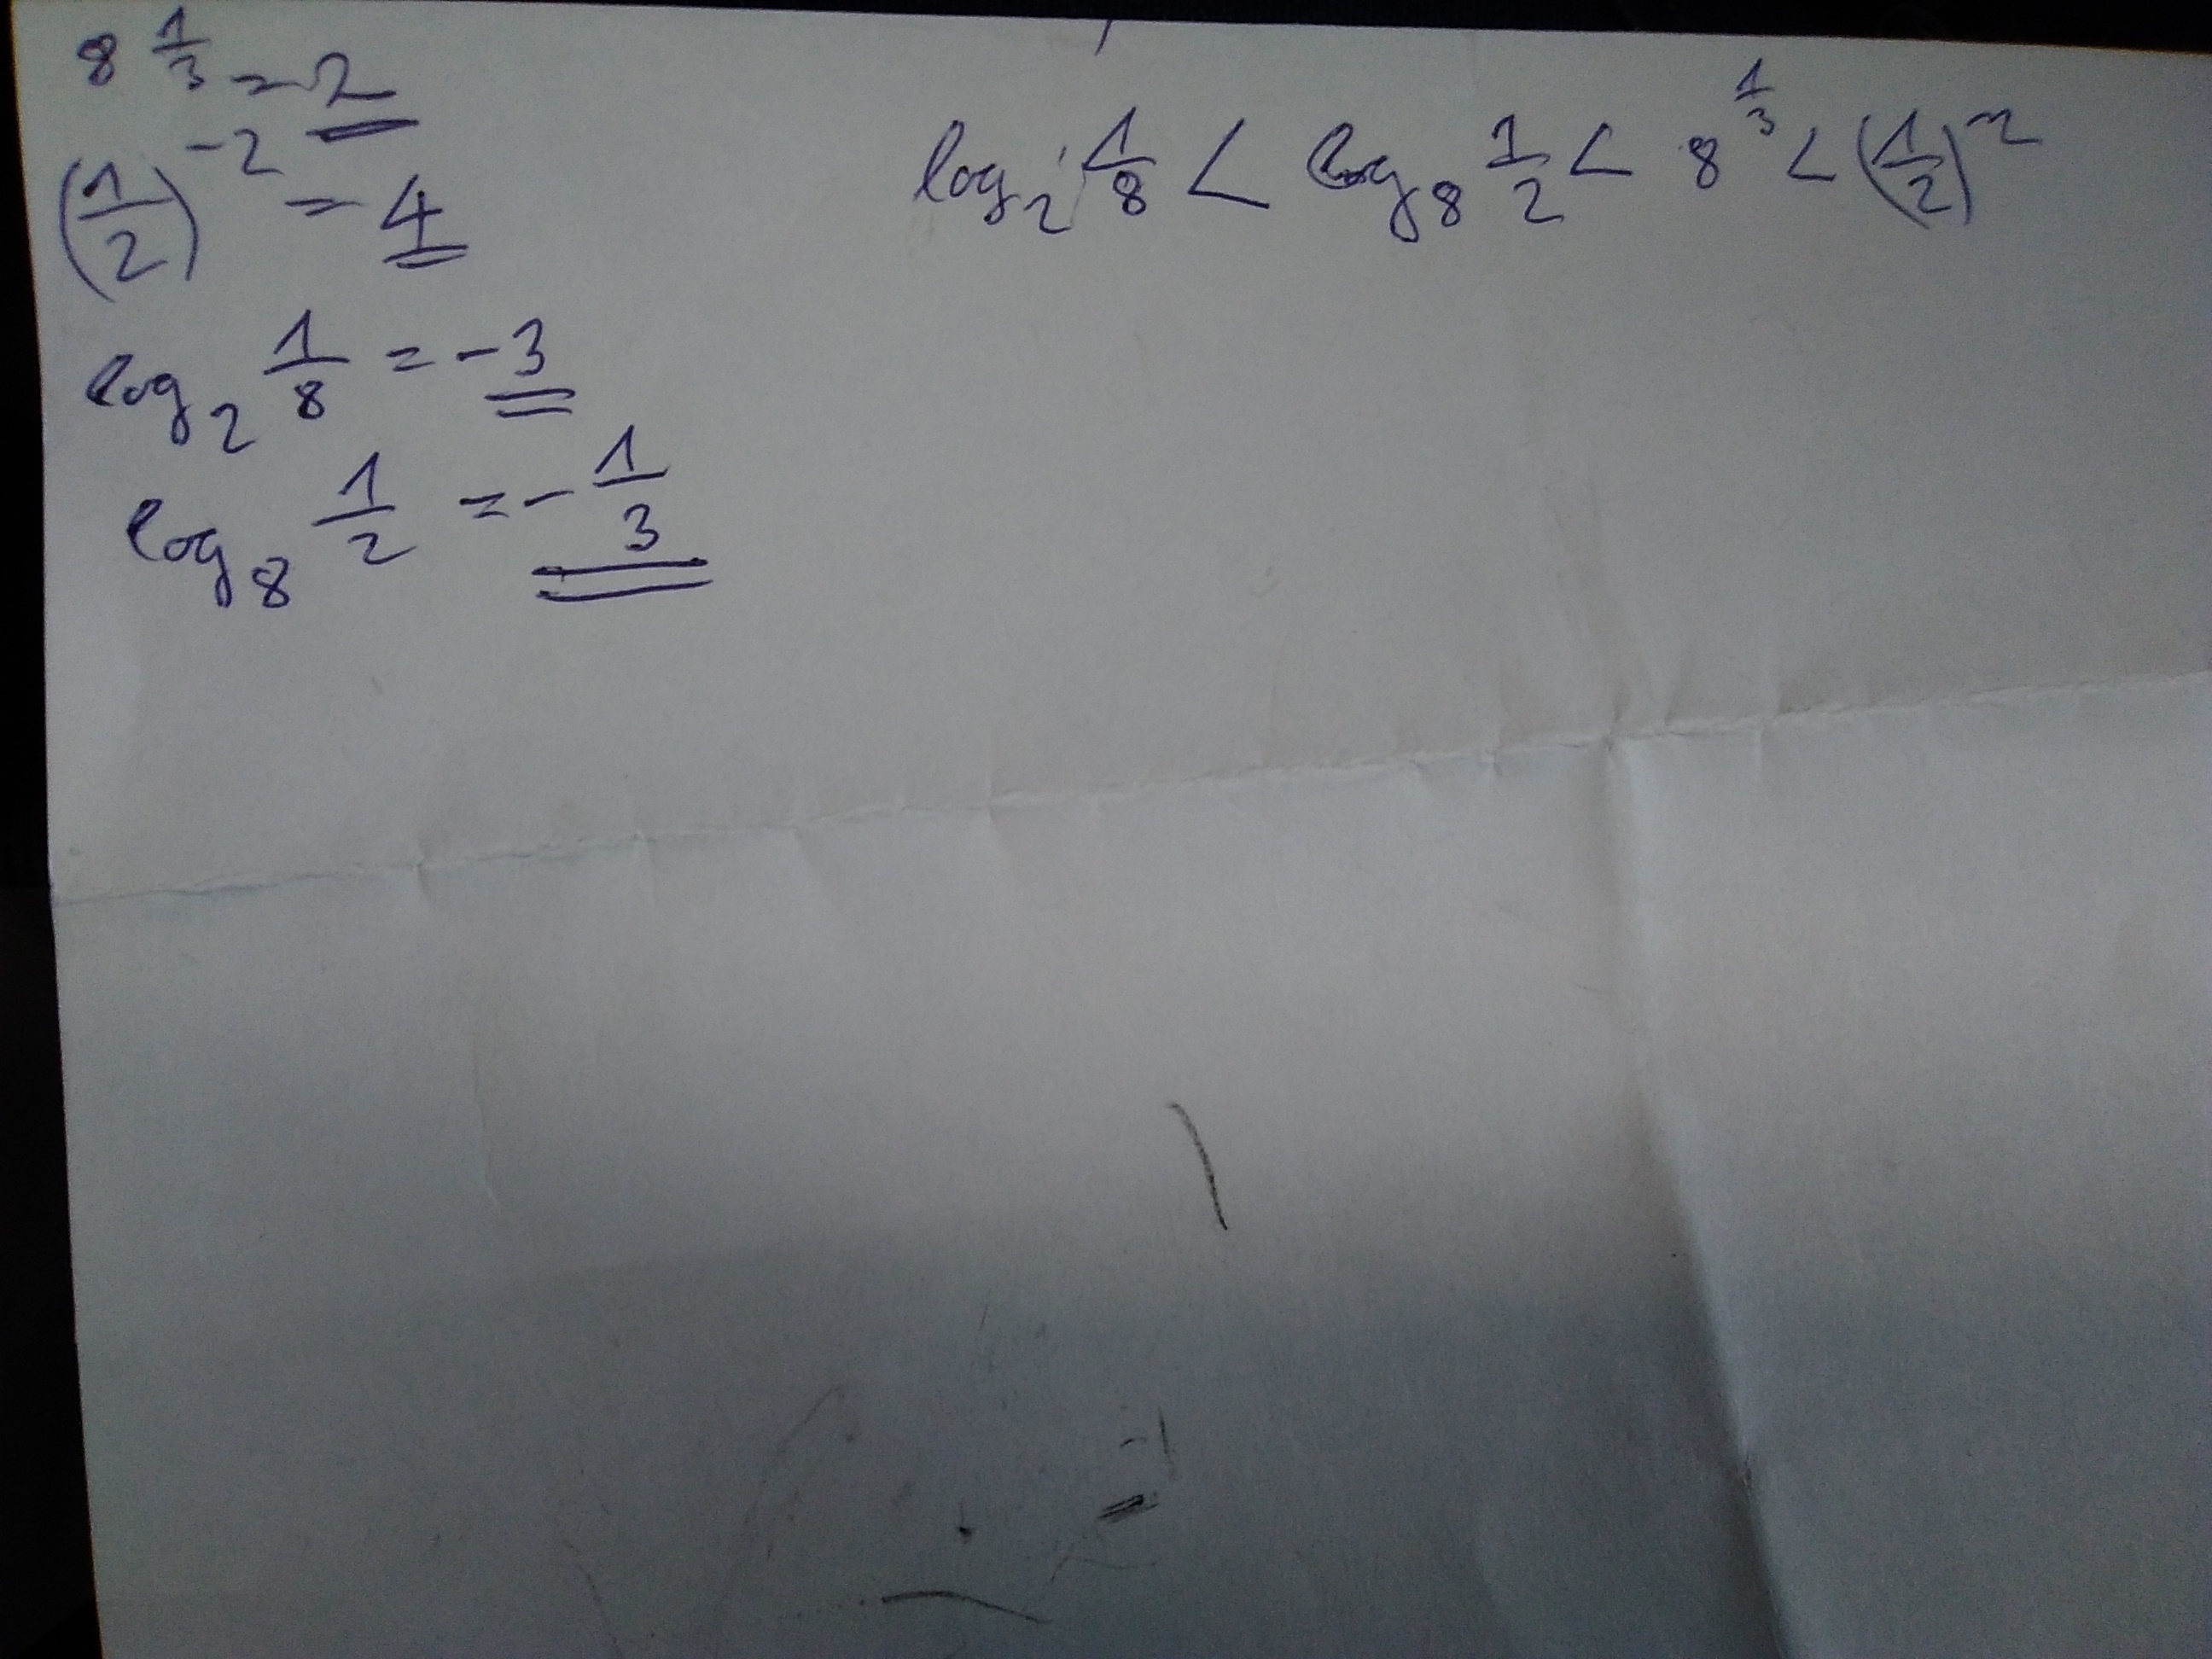 8^(1/3) = 2
(1/2)^-2 = 4
log₂ 1/8 = -3
log₈ 1/2 = - 1/3
log₂ 1/8 < log₈ 1/2 < 8^(1/3) < (1/2)^-2